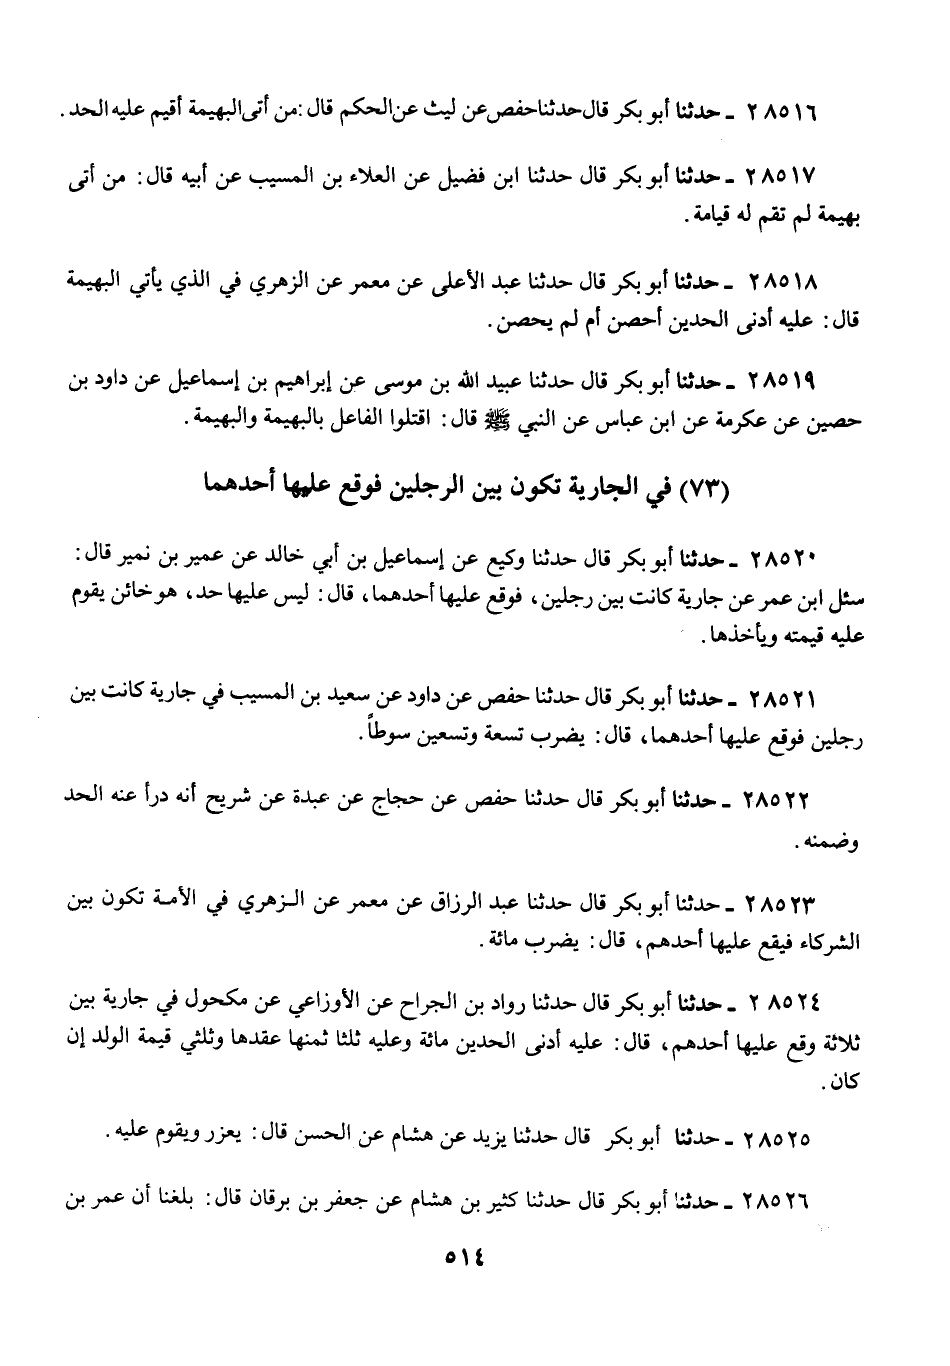 ٢٨٥١٦ - حدثنا أبو بكر قال حدثنا حفص عن ليث عن الحكم قال: من أتى البهيمة أقيم عليه الحد.
٢٨٥١٧ - حدثنا أبو بكر قال حدثنا ابن فضيل عن العلاء بن المسيب عن أبيه قال: من أتى
بهيمة لم تقم له قيامة.
٢٨٥١٨ - حدثنا أبو بكر قال حدثنا عبد الأعلى عن معمر عن الزهري في الذي يأتي البهيمة
قال: عليه أدنى الحدين أحصن أم لم يحصن.
٢٨٥١٩ - حدثنا أبو بكر قال حدثنا عبيد الله بن موسى عن إبراهيم بن إسماعيل عن داود بن
حصين عن عكرمة عن ابن عباس عن النبي ﷺ قال: اقتلوا الفاعل بالبهيمة والبهيمة.
(٧٣) في الجارية تكون بين الرجلين فوقع عليها أحدهما
٢٨٥٢٠ - حدثنا أبو بكر قال حدثنا وكيع عن إسماعيل بن أبي خالد عن عمير بن نمير قال:
سئل ابن عمر عن جارية كانت بين رجلين، فوقع عليها أحدهما، قال: ليس عليها حد، هو خائن يقوم
عليه قيمته ويأخذها.
٢٨٥٢١ - حدثنا أبو بكر قال حدثنا حفص عن داود عن سعيد بن المسيب في جارية كانت بين
رجلين فوقع عليها أحدهما، قال: يضرب تسعة وتسعين سوطاً.
٢٨٥٢٢ - حدثنا أبو بكر قال حدثنا حفص عن حجاج عن عبدة عن شريح أنه درأ عنه الحد
وضمنه.
٢٨٥٢٣ - حدثنا أبو بكر قال حدثنا عبد الرزاق عن معمر عن الزهري في الأمة تكون بين
الشركاء فيقع عليها أحدهم، قال: يضرب مائة.
٢٨٥٢٤ - حدثنا أبو بكر قال حدثنا رواد بن الجراح عن الأوزاعي عن مكحول في جارية بين
ثلاثة وقع عليها أحدهم، قال: عليه أدنى الحدين مائة وعليه ثلثا ثمنها عقدها وثلثي قيمة الولد إن
كان.
٢٨٥٢٥ - حدثنا أبو بكر قال حدثنا يزيد عن هشام عن الحسن قال: يعزر ويقوم عليه.
٢٨٥٢٦ - حدثنا أبو بكر قال حدثنا كثير بن هشام عن جعفر بن برقان قال: بلغنا أن عمر بن
٥١٤